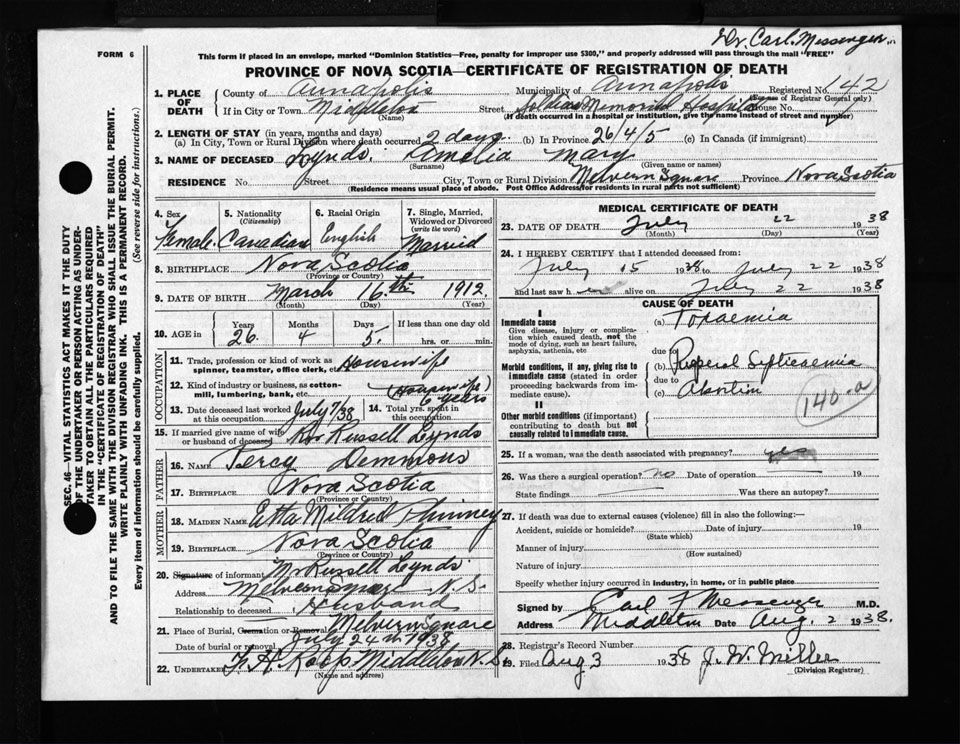 Dr. Carl. Messenger.
FORM 6
This form if placed in an envelope, marked "Dominion Statistics—Free, penalty for improper use $300," and properly addressed will pass through the mail "FREE"
PROVINCE OF NOVA SCOTIA—CERTIFICATE OF REGISTRATION OF DEATH
1. PLACE OF DEATH
County of Annapolis Municipality of Annapolis Registered No. 142
(Use of Registrar General only)
If in City or Town Middleton Street Soldiers Memorial Hospital House No.
(Name) (If death occurred in a hospital or institution, give the name instead of street and number)
2. LENGTH OF STAY (in years, months and days)
(a) In City, Town or Rural Division where death occurred 2 days. (b) In Province 26/4/5 (c) In Canada (if immigrant)
3. NAME OF DECEASED Lynds. Amelia Mary
(Surname) (Given name or names)
RESIDENCE No. Street City, Town or Rural Division Melvern Square Province Nova Scotia
(Residence means usual place of abode. Post Office Address for residents in rural parts not sufficient)
SEC. 46—VITAL STATISTICS ACT MAKES IT THE DUTY
OF THE UNDERTAKER OR PERSON ACTING AS UNDER-
TAKER TO OBTAIN ALL THE PARTICULARS REQUIRED
IN THE "CERTIFICATE OF REGISTRATION OF DEATH"
AND TO FILE THE SAME WITH THE DIVISION REGISTRAR WHO SHALL ISSUE THE BURIAL PERMIT.
WRITE PLAINLY WITH UNFADING INK. THIS IS A PERMANENT RECORD.
Every item of information should be carefully supplied. (See reverse side for instructions.)
4. Sex Female.
5. Nationality (Citizenship) Canadian
6. Racial Origin English
7. Single, Married, Widowed or Divorced (write the word) Married
8. BIRTHPLACE Nova Scotia
(Province or Country)
9. DATE OF BIRTH March 16th 1912.
(Month) (Day) (Year)
10. AGE in Years 26 Months 4 Days 5. If less than one day old hrs. or min.
OCCUPATION
11. Trade, profession or kind of work as spinner, teamster, office clerk, etc. Housewife
12. Kind of industry or business, as cotton-mill, lumbering, bank, etc. (Housewife)
13. Date deceased last worked at this occupation July 7/38 14. Total yrs. spent in this occupation 6 years
15. If married give name of wife or husband of deceased Mr Russell Lynds
FATHER
16. NAME Percy Demmons
17. BIRTHPLACE Nova Scotia
(Province or Country)
MOTHER
18. MAIDEN NAME Etta Mildred Phinney
19. BIRTHPLACE Nova Scotia
(Province or Country)
20. Signature of informant Mr Russell Lynds
Address Melvern Square N.S.
Relationship to deceased Husband
21. Place of Burial, Cremation or Removal Melvern Square
Date of burial or removal July 24th 1938
22. UNDERTAKER Middleton N.S.
(Name and address)
MEDICAL CERTIFICATE OF DEATH
23. DATE OF DEATH July 22 1938
(Month) (Day) (Year)
24. I HEREBY CERTIFY that I attended deceased from:
July 15 1938 to July 22 1938
and last saw her alive on July 22 1938
CAUSE OF DEATH
I
Immediate cause
Give disease, injury or complication which caused death, not the mode of dying, such as heart failure, asphyxia, asthenia, etc
(a) Toxaemia
due to
Morbid conditions, if any, giving rise to immediate cause (stated in order proceeding backwards from immediate cause).
(b) Puerperal Septicaemia
due to
(c) Abortion
140-a
II
Other morbid conditions (if important) contributing to death but not causally related to immediate cause.
25. If a woman, was the death associated with pregnancy? yes
26. Was there a surgical operation? no Date of operation 19
State findings Was there an autopsy?
27. If death was due to external causes (violence) fill in also the following:—
Accident, suicide or homicide? Date of injury 19
(State which)
Manner of injury
(How sustained)
Nature of injury
Specify whether injury occurred in industry, in home, or in public place
Signed by Carl F Messenger M.D.
Address Middleton Date Aug. 2 1938.
28. Registrar's Record Number
29. Filed Aug 3 1938 J. W. Miller
(Division Registrar)